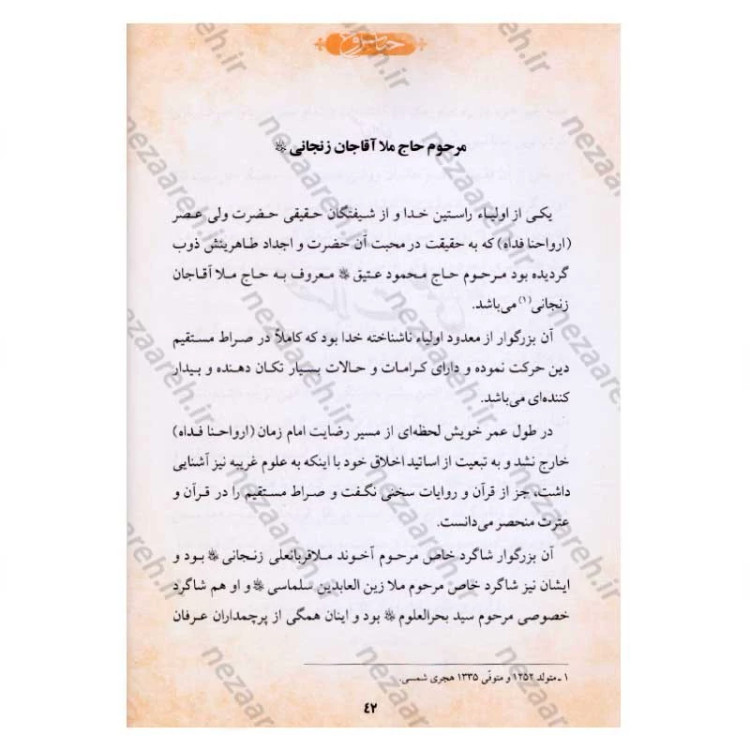 مرحوم حاج ملا آقاجان زنجانی
یکی از اولیاء راستین خدا و از شیفتگان حقیقی حضرت ولی عصر
(ارواحنا فداه) که به حقیقت در محبت آن حضرت و اجداد طاهرینش ذوب
گردیده بود مرحوم حاج محمود عتیق معروف به حاج ملا آقاجان
زنجانی(۱) می‌باشد.
آن بزرگوار از معدود اولیاء ناشناخته خدا بود که کاملاً در صراط مستقیم
دین حرکت نموده و دارای کرامات و حالات بسیار تکان دهنده و بیدار
کننده‌ای می‌باشد.
در طول عمر خویش لحظه‌ای از مسیر رضایت امام زمان (ارواحنا فداه)
خارج نشد و به تبعیت از اساتید اخلاق خود با اینکه به علوم غریبه نیز آشنایی
داشت، جز از قرآن و روایات سخنی نگفت و صراط مستقیم را در قرآن و
عترت منحصر می‌دانست.
آن بزرگوار شاگرد خاص مرحوم آخوند ملاقربانعلی زنجانی بود و
ایشان نیز شاگرد خاص مرحوم ملا زین العابدین سلماسی و او هم شاگرد
خصوصی مرحوم سید بحرالعلوم بود و اینان همگی از پرچمداران عرفان
۱ ـ متولد ۱۲۵۲ و متوفّی ۱۳۳۵ هجری شمسی.
۴۲
nezaareh.ir